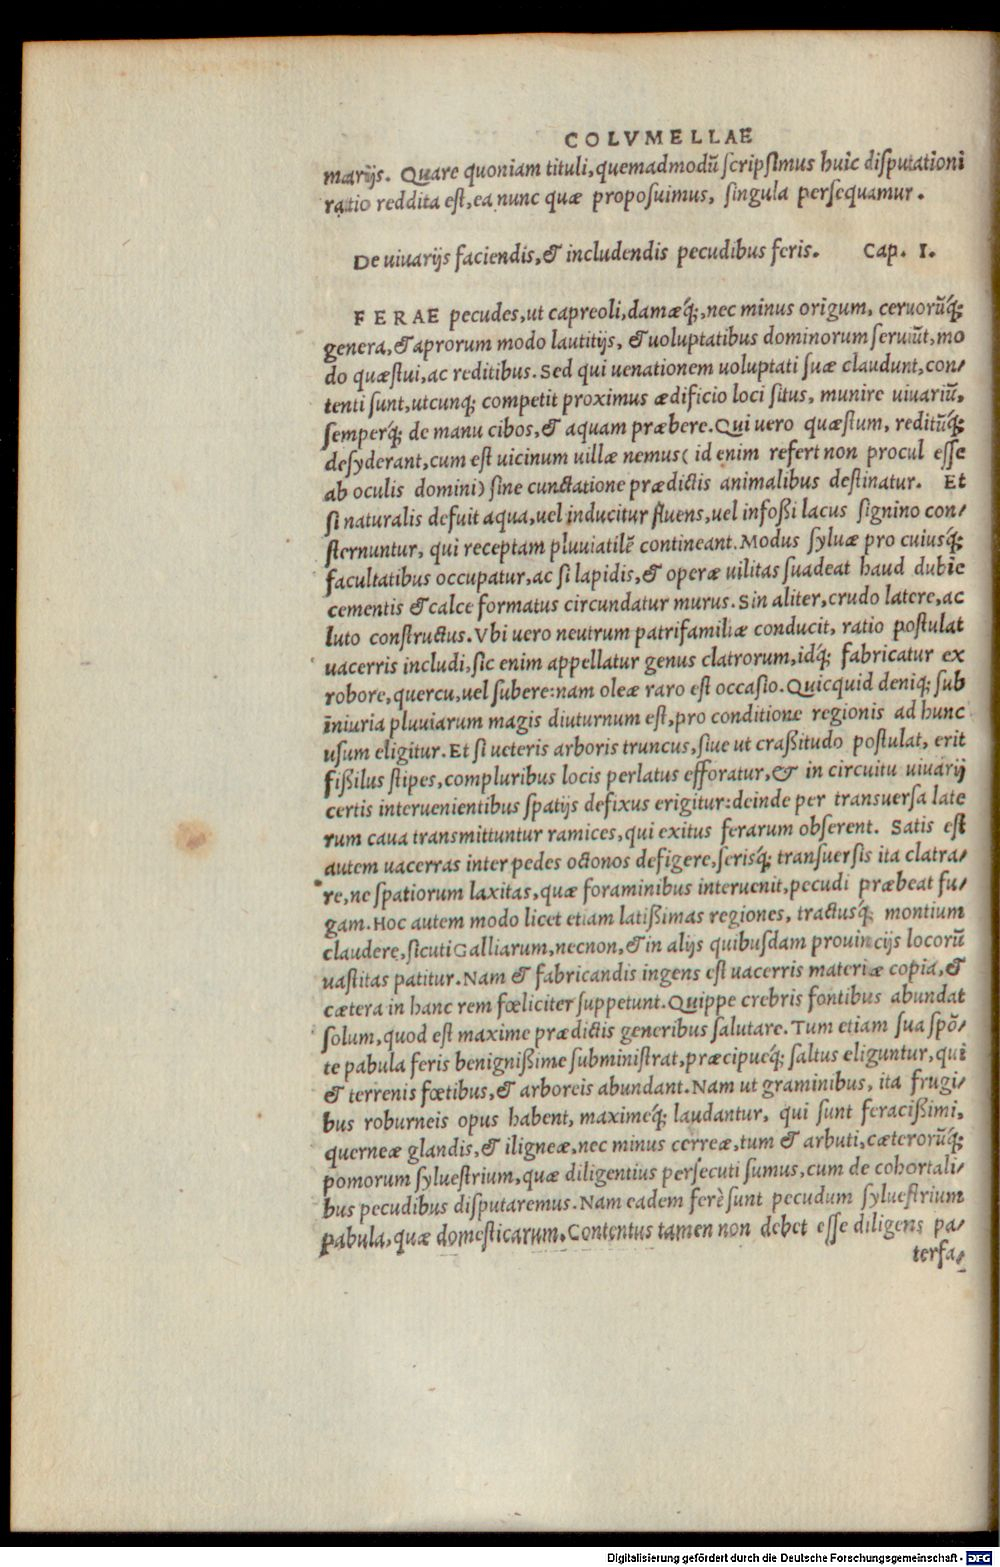 COLVMELLAE
marijs. Quare quoniam tituli, quemadmodũ scripsimus huic disputationi
ratio reddita est, ea nunc quæ proposuimus, singula persequamur.
De uiuarijs faciendis, & includendis pecudibus feris. Cap. I.
FERAE pecudes, ut capreoli, damæq́;, nec minus origum, ceruorũq́;
genera, & aprorum modo lautitijs, & uoluptatibus dominorum seruiũt, mo
do quæstui, ac reditibus. Sed qui uenationem uoluptati suæ claudunt, con/
tenti sunt, utcunq; competit proximus ædificio loci situs, munire uiuariũ,
semperq́; de manu cibos, & aquam præbere. Qui uero quæstum, reditũq́;
desyderant, cum est uicinum uillæ nemus ( id enim refert non procul esse
ab oculis domini) sine cunctatione prædictis animalibus destinatur. Et
si naturalis defuit aqua, uel inducitur fluens, uel infoßi lacus signino con/
sternuntur, qui receptam pluuiatilẽ contineant. Modus syluæ pro cuiusq́;
facultatibus occupatur, ac si lapidis, & operæ uilitas suadeat haud dubie
cementis & calce formatus circundatur murus. Sin aliter, crudo latere, ac
luto constructus. Vbi uero neutrum patrifamiliæ conducit, ratio postulat
uacerris includi, sic enim appellatur genus clatrorum, idq́; fabricatur ex
robore, quercu, uel subere: nam oleæ raro est occasio. Quicquid deniq; sub
iniuria pluuiarum magis diuturnum est, pro conditione regionis ad hunc
usum eligitur. Et si ueteris arboris truncus, siue ut craßitudo postulat, erit
fißilus stipes, compluribus locis perlatus efforatur, & in circuitu uiuarij
certis interuenientibus spatijs defixus erigitur: deinde per transuersa late
rum caua transmittuntur ramices, qui exitus ferarum obserent. Satis est
autem uacerras inter pedes octonos defigere, serisq́; transuersis ita clatra/
re, ne spatiorum laxitas, quæ foraminibus interuenit, pecudi præbeat fu/
gam. Hoc autem modo licet etiam latißimas regiones, tractusq́; montium
claudere, sicuti Galliarum, necnon, & in alijs quibusdam prouincijs locorũ
uastitas patitur. Nam & fabricandis ingens est uacerris materiæ copia, &
cætera in hanc rem fœliciter suppetunt. Quippe crebris fontibus abundat
solum, quod est maxime prædictis generibus salutare. Tum etiam sua spõ/
te pabula feris benignißime subministrat, præcipueq́; saltus eliguntur, qui
& terrenis fœtibus, & arboreis abundant. Nam ut graminibus, ita frugi/
bus roburneis opus habent, maximeq́; laudantur, qui sunt feracißimi,
querneæ glandis, & iligneæ, nec minus cerreæ, tum & arbuti, cæterorũq́;
pomorum syluestrium, quæ diligentius persecuti sumus, cum de cohortali/
bus pecudibus disputaremus. Nam eadem ferè sunt pecudum syluestrium
pabula, quæ domesticarum. Contentus tamen non debet esse diligens pa/
terfa/
Digitalisierung gefördert durch die Deutsche Forschungsgemeinschaft - DFG